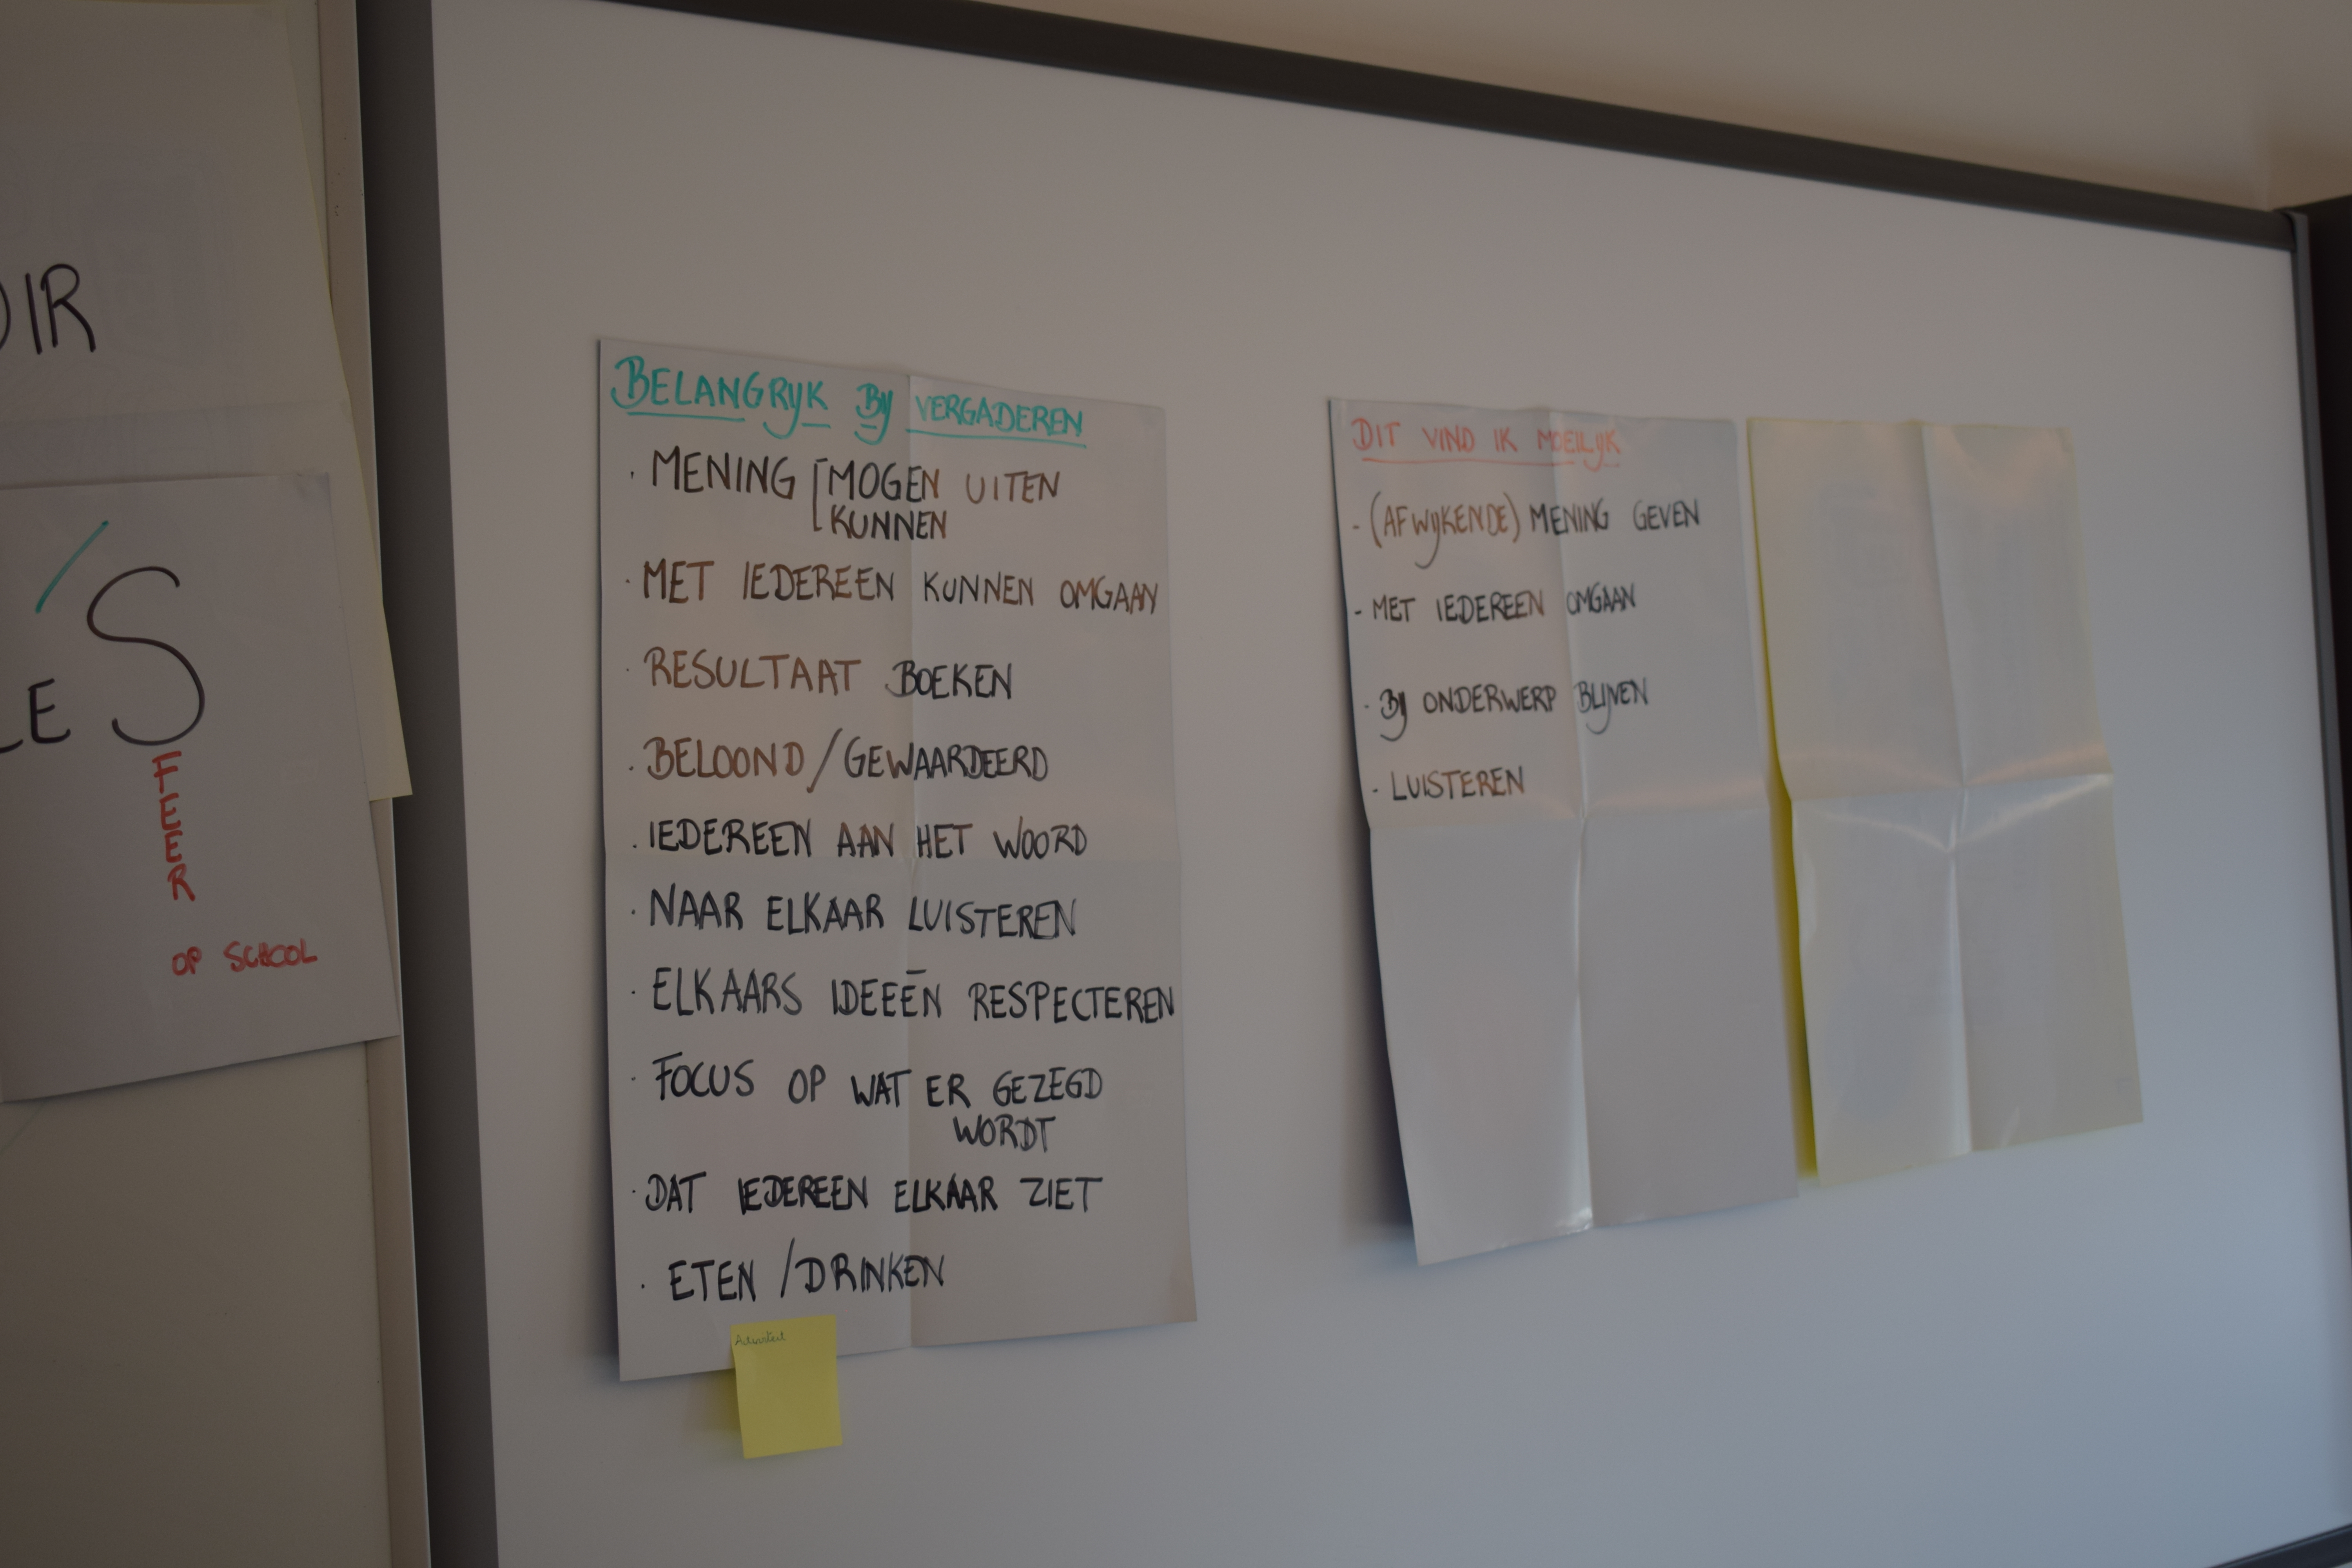 OIR
LES
FEER
OP SCHOOL
BELANGRIJK BIJ VERGADEREN
· MENING [MOGEN UITEN
KUNNEN
· MET IEDEREEN KUNNEN OMGAAN
· RESULTAAT BOEKEN
· BELOOND/GEWAARDEERD
· IEDEREEN AAN HET WOORD
· NAAR ELKAAR LUISTEREN
· ELKAARS IDEEËN RESPECTEREN
· FOCUS OP WAT ER GEZEGD
WORDT
· DAT IEDEREEN ELKAAR ZIET
· ETEN /DRINKEN
DIT VIND IK MOEILIJK
- (AFWIJKENDE) MENING GEVEN
- MET IEDEREEN OMGAAN
- BIJ ONDERWERP BLIJVEN
- LUISTEREN